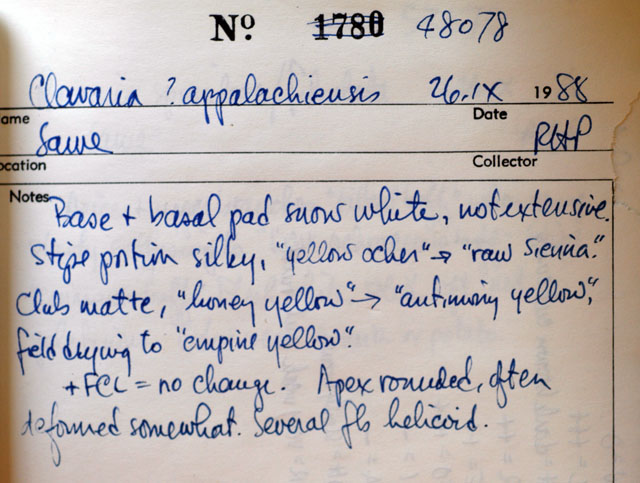 No. 1780 48078
Clavaria ? appalachiensis 26.IX 1988
ame Date
Same RHP
ocation Collector
Notes Base + basal pad snow white, not extensive.
Stipe portion silky, "yellow ocher" → "raw sienna."
Club matte, "honey yellow" → "antimony yellow",
field drying to "empire yellow".
+ FCL = no change. Apex rounded, often
deformed somewhat. Several fb helicoid.